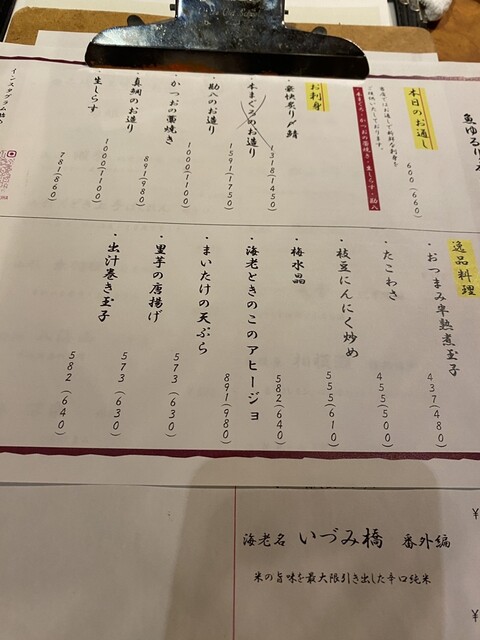 魚ゆるり
本日のお通し
600(660)
本まぐろ・かつおの藁焼き・生しらす・勘八
お刺身
・豪快炙り〆鯖
1318(1450)
・本まぐろのお造り
1591(1750)
・勘八のお造り
1000(1100)
・かつおの藁焼き
891(980)
・真鯛のお造り
1000(1100)
・生しらす
781(860)
インスタグラム始め
逸品料理
・おつまみ半熟煮玉子
437(480)
・たこわさ
455(500)
・枝豆にんにく炒め
555(610)
・梅水晶
582(640)
・海老ときのこのアヒージョ
891(980)
・まいたけの天ぷら
573(630)
・里芋の唐揚げ
573(630)
・出汁巻き玉子
582(640)
海老名 いづみ橋 番外編
米の旨味を最大限引き出した辛口純米
¥
¥